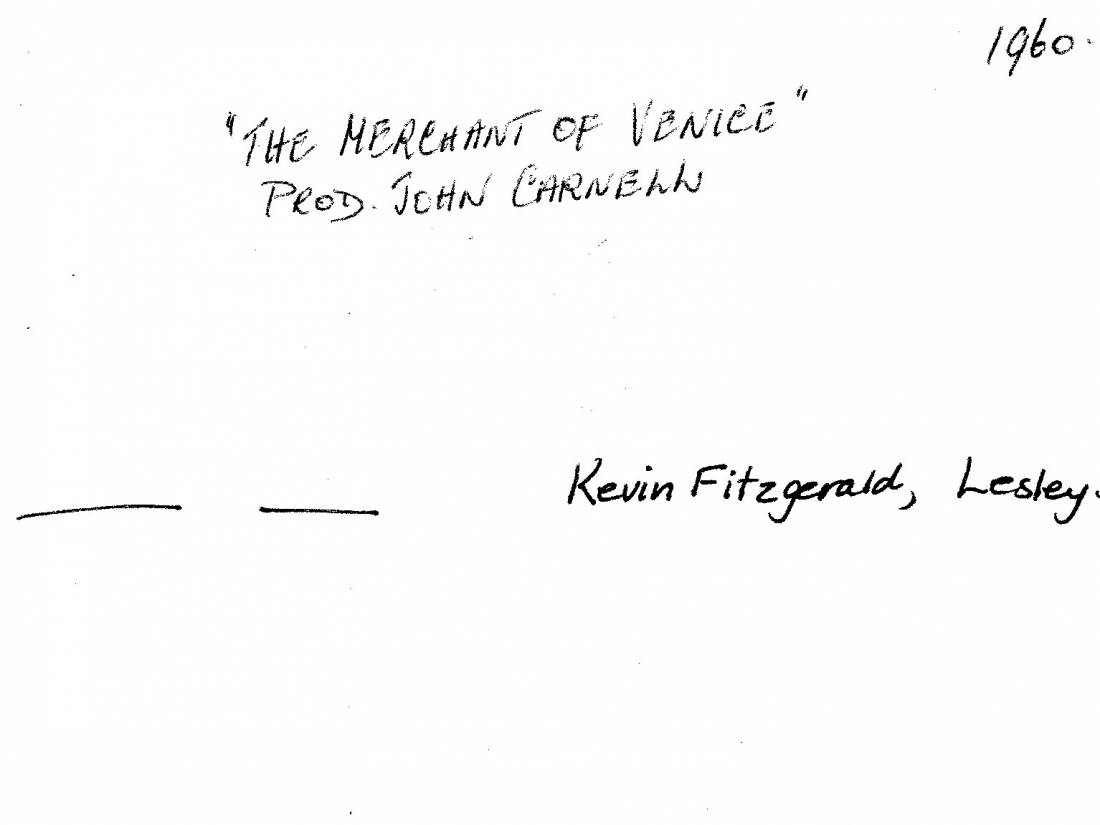 1960.
"THE MERCHANT OF VENICE"
PROD. JOHN CARNELL
Kevin Fitzgerald, Lesley.